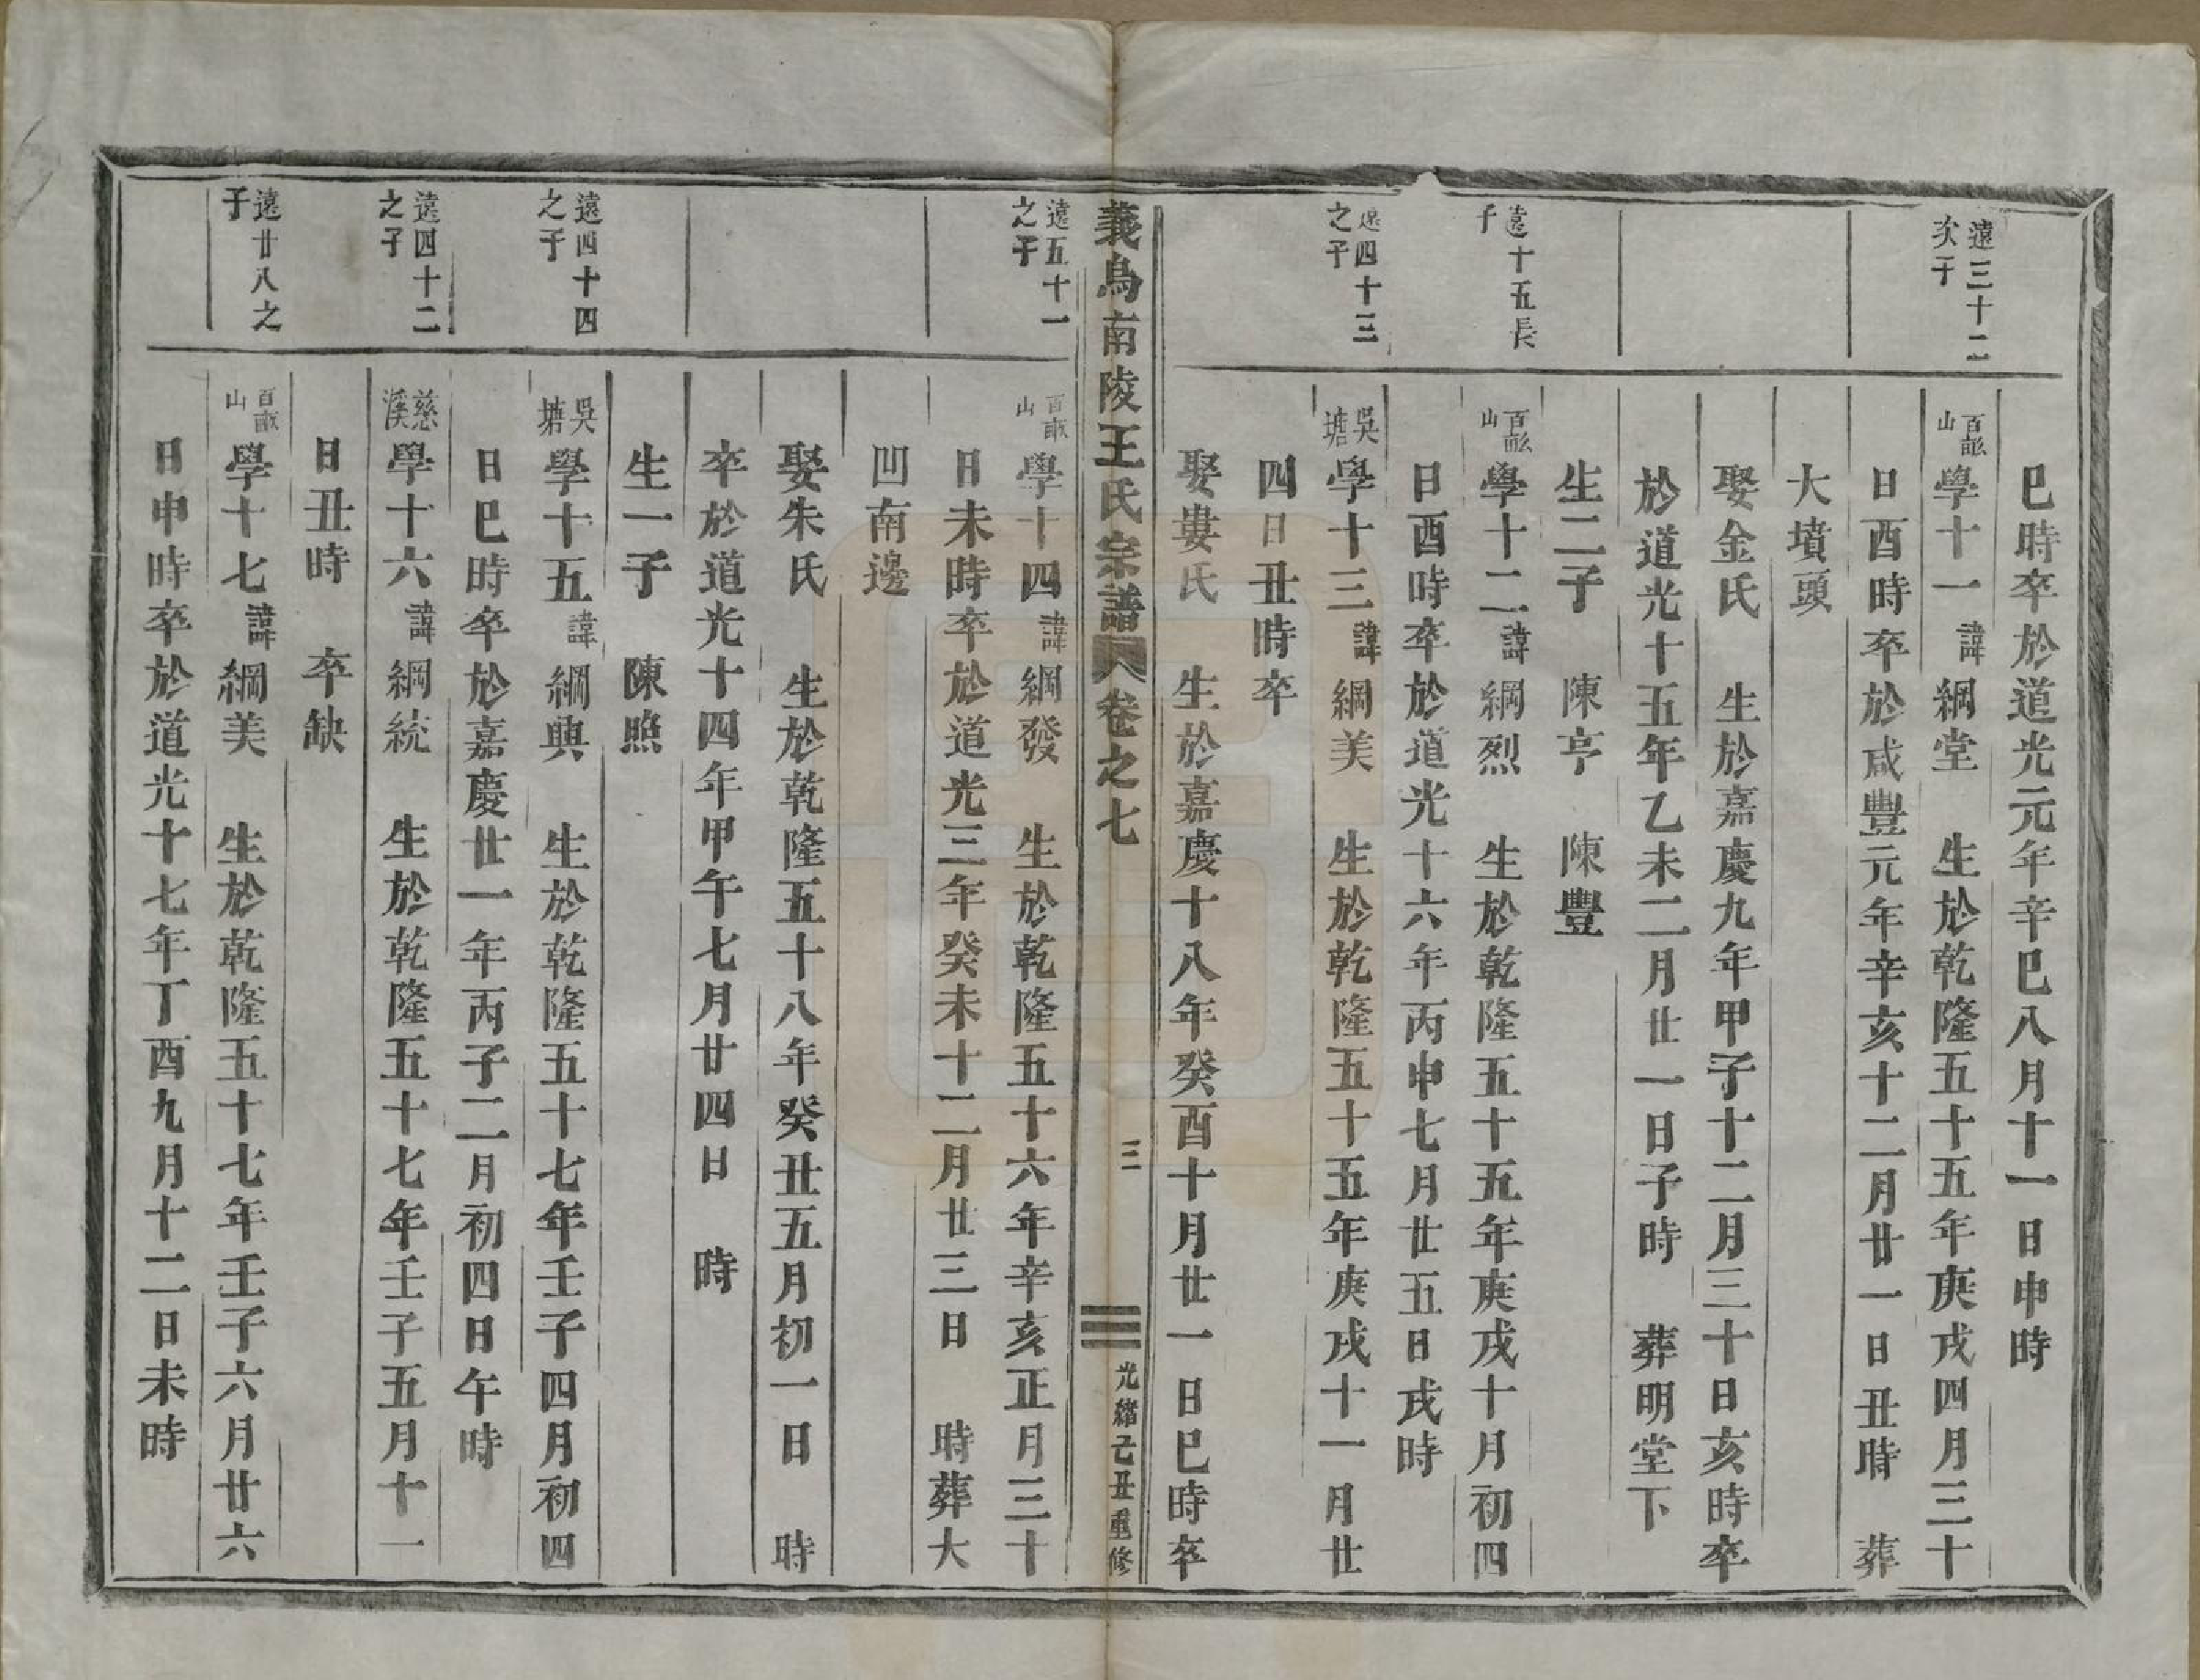 巳時卒於道光元年辛巳八月十一日申時
遠三十二
次子
百畝
山
學十一諱綱堂 生於乾隆五十五年庚戌四月三十
日酉時卒於咸豐元年辛亥十二月廿一日丑時 葬
大墳頭
娶金氏 生於嘉慶九年甲子十二月三十日亥時卒
於道光十五年乙未二月廿一日子時 葬明堂下
生二子 陳亨 陳豐
遠十五長
子
百畝
山
學十二諱綱烈 生於乾隆五十五年庚戌十月初四
日酉時卒於道光十六年丙申七月廿五日戌時
遠四十三
之子
吳
塘
學十三諱綱美 生於乾隆五十五年庚戌十一月廿
四日丑時卒
娶婁氏 生於嘉慶十八年癸酉十月廿一日巳時卒
義烏南陵王氏宗譜 卷之七 三 光緒己丑重修
遠五十一
之子
百畝
山
學十四諱綱發 生於乾隆五十六年辛亥正月三十
日未時卒於道光三年癸未十二月廿三日 時葬大
凹南邊
娶朱氏 生於乾隆五十八年癸丑五月初一日 時
卒於道光十四年甲午七月廿四日 時
生一子 陳照
遠四十四
之子
吳
塘
學十五諱綱興 生於乾隆五十七年壬子四月初四
日巳時卒於嘉慶廿一年丙子二月初四日午時
遠四十二
之子
慈
溪
學十六諱綱統 生於乾隆五十七年壬子五月十一
日丑時 卒缺
遠廿八之
子
百畝
山
學十七諱綱美 生於乾隆五十七年壬子六月廿六
日申時卒於道光十七年丁酉九月十二日未時